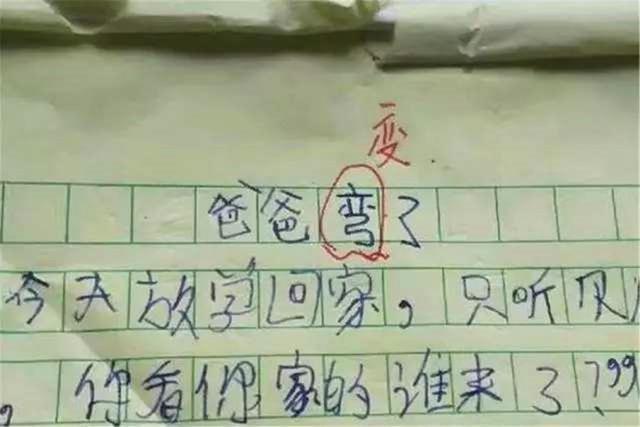 变
爸爸弯了
今天放学回家，只听见
，你看你家的谁来了？??